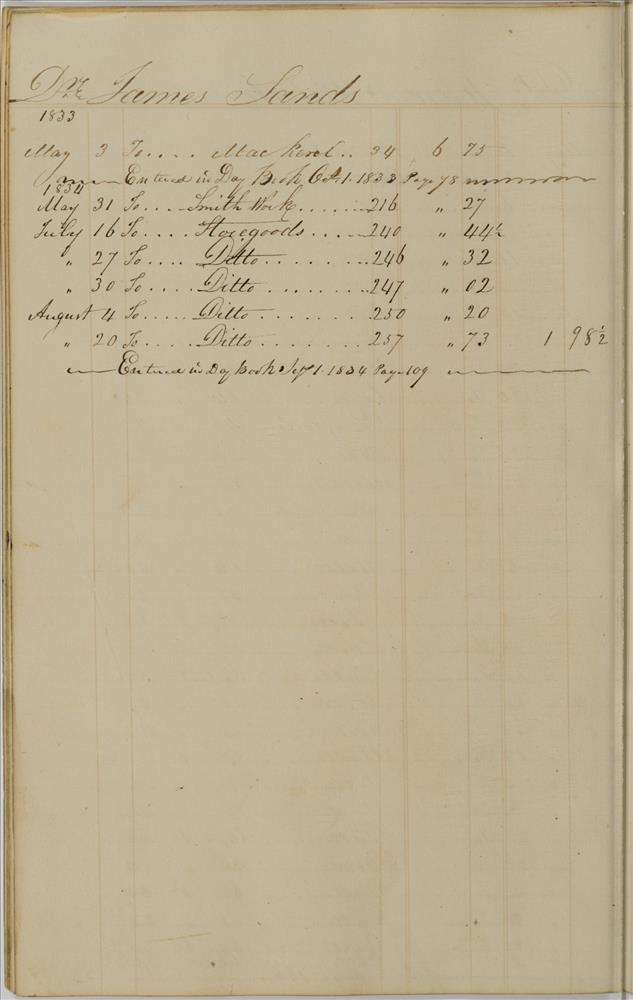 Dr. James Sands
1833
May 3 To .... Mackerel .. 34 6 75
Entered in Day Book Oct. 1. 1833 Page 78
1834
May 31 To .... Smith Work ...... 216 " 27
July 16 To .... Storegoods ..... 240 " 44½
" 27 To .... Ditto ....... 246 " 32
" 30 To .... Ditto ........ 247 " 02
August 4 To ..... Ditto ....... 250 " 20
" 20 To ..... Ditto ....... 257 " 73 1 98½
Entered in Day Book Sept 1. 1834 Page 109